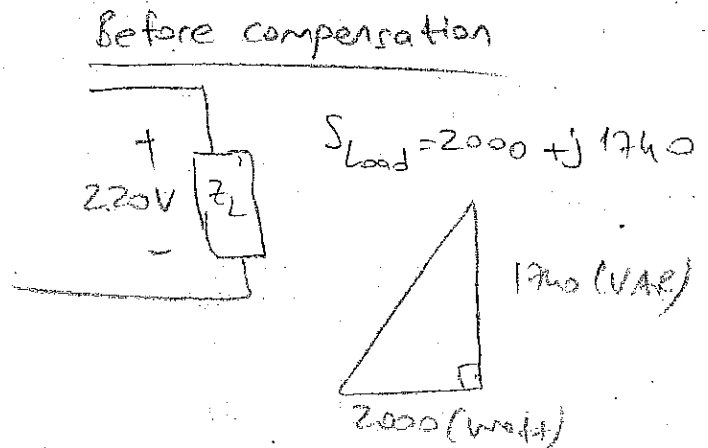 Before compensation
+
220V
-
Z_L
S_Load = 2000 + j 1740
1740 (VAR)
2000 (watt)